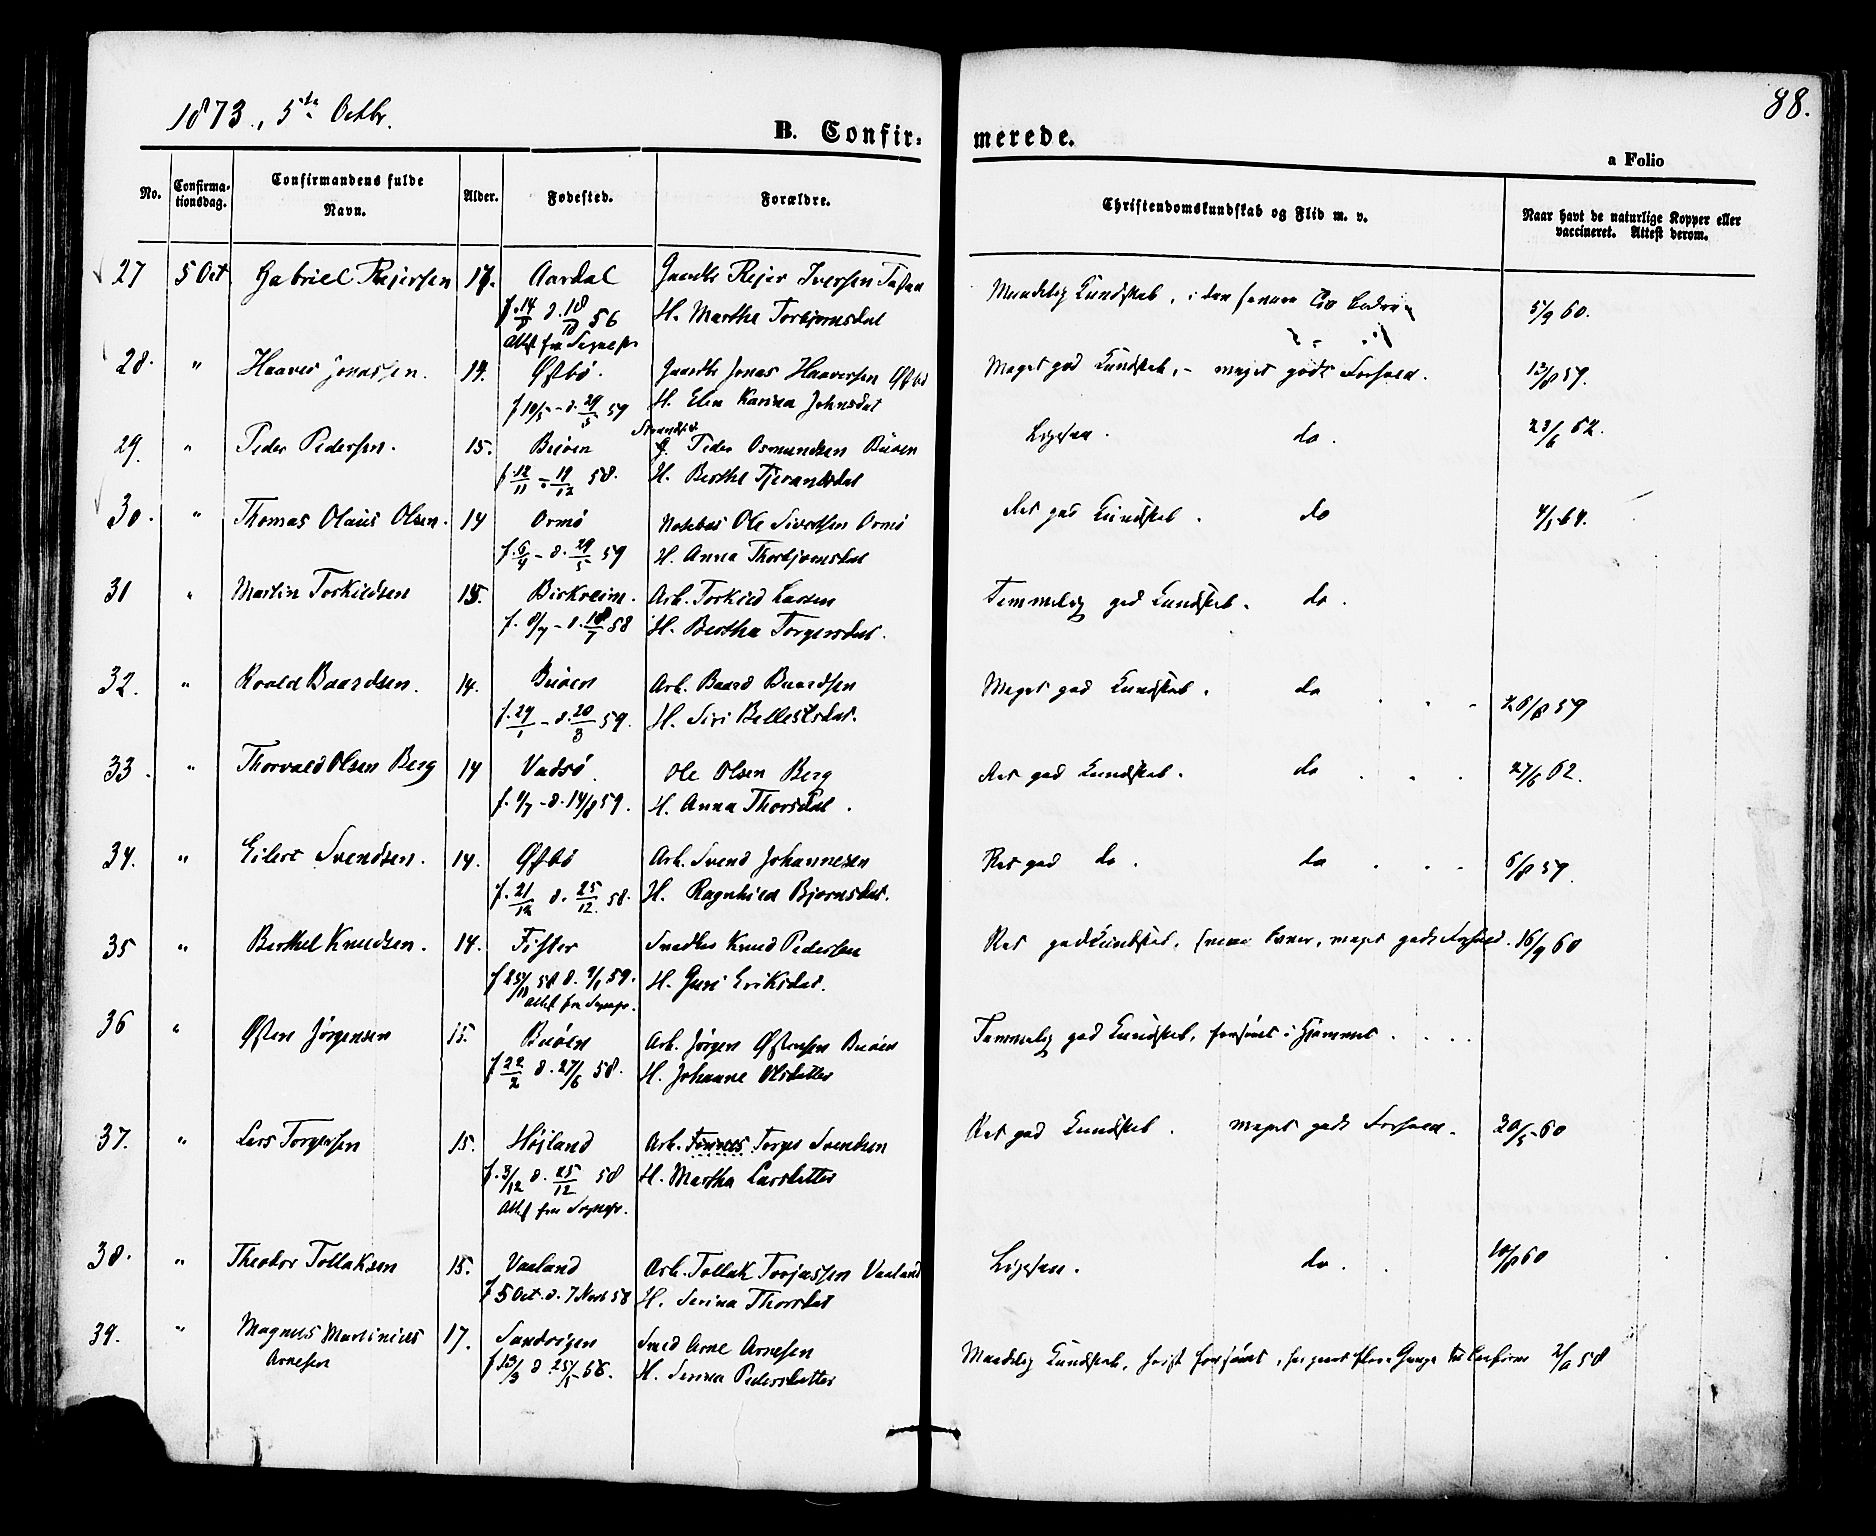 1873, 5te Octbr.
88.
B. Confir- merede.
a Folio
No. Confirma-tionsdag. Confirmandens fulde Navn. Alder. Fødested. Forældre. Christendomskundskab og Flid m. v. Naar havt de naturlige Kopper eller vaccineret. Attest derom.
27 5 Oct. Gabriel Reiersen 17. Aardal Gaardbr Rejer Iversen Mundelig Kundskab, i den senere Tid 5/9 60.
f. 14/9 d. 18/10 56 H. Martha Torbjørnsdat
Attest fra Sognepr
28. " Haaver Jonassen. 14. Østbø. Gaardbr Jonas Haaversen Østbø Meget god Kundskab, - meget godt Forhold. 13/8 59.
f 10/5 - d. 29/5 59 H. Elen Karina Johnsdat
29. " Peder Pedersen. 15. Buøen Strandsid. G. Peder Osmundsen Buøen Ligesaa. do. 23/6 62.
f. 12/11 - 19/12 58. H. Berthe Tjerandsdat
30. " Thomas Olaus Olsen. 14 Ormø Ole Sivertsen Ormø Ret god Kundskab. do 4/5 64.
f. 6/4 - d. 29/5 59 H. Anna Thorbjørnsdat
31 " Martin Torkildsen 15. Birkreim. Arb. Torkild Larsen Temmelig god Kundskab. do.
f. 8/7 - d. 18/7 58 H. Bertha Torgersdat.
32. " Roald Baardsen. 14. Buøen Arb. Baard Baardsen Meget god Kundskab. do 26/8 59
f. 29/1 - d. 20/3 59. H. Siri Bellestsdat.
33. " Thorvald Olsen Berg 14 Vadsø. Ole Olsen Berg Ret god Kundskab. do 27/6 62.
f. 1/7 - d. 14/8 59. H. Anna Thorsdat.
34. " Eilert Svendsen. 14. Østbø Arb. Svend Johannesen Ret god do. do 6/8 59.
f. 21/12 d. 25/12. 58. H. Ragnhild Bjørnsdat.
35 " Berthel Knudsen. 14. Fister Knud Pedersen Ret god Kundskab, meget godt Forhold. 16/9 60
f 25/11 58 d. 1/1 59. H. Guri Eriksdat.
Attest fra Sognepr.
36 " Østen Jørgensen 15. Buøen Arb. Jørgen Østensen Buøen Temmelig god Kundskab, forsømt i Hjemmet.
f 22/2 d. 27/6 58. H. Johanne Olsdatter
37. " Lars Torgersen 15. Højland Arb. Torger Svendsen Ret god Kundskab. meget godt Forhold. 20/5 60
f. 3/12 d. 25/12 58 H. Martha Larsdatter
Attest fra Sognepr.
38. " Theodor Tollaksen 15. Vaaland Arb. Tollak Torjussen Vaaland Ligesaa. do. 10/8 60
f 5 Oct. d. 7 Novb 58 H. Serina Thorsdat
39. " Magnus Martinius 17. Sandvigen Smed Arne Arnesen Maadelig Kundskab, forsømt, flere Gange 2/6 58
Arnesen f 13/3 d. 25/5 56. H. Serina Pedersdatter